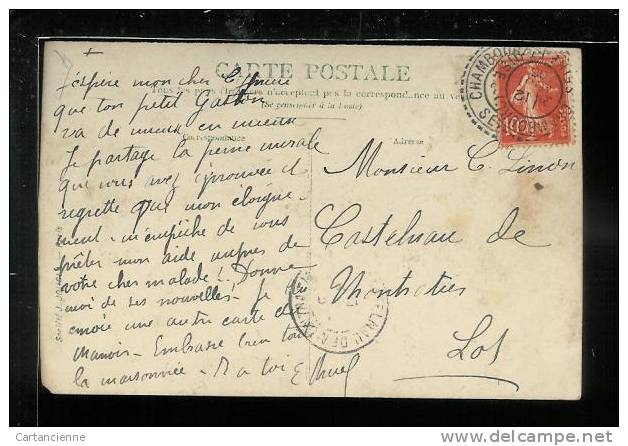 CARTE POSTALE
Tous les pays étrangers n'acceptent pas la correspondance au verso
(Se renseigner à la Poste)
Correspondance
Adresse
J'espère mon cher
que ton petit Gaston
va de mieux en mieux
Je partage la peine morale
que vous avez éprouvée et
regrette que mon éloigne-
ment m'empêche de vous
prêter mon aide auprès de
votre cher malade! Donne
moi de ses nouvelles. Je
envoie une autre carte du
Manoir - Embrasse bien toute
la maisonnée - à toi
Monsieur C. Linon
Castelnau de
Montratier
Lot
CHAMBOURCY
10
Cartancienne
delcampe.net